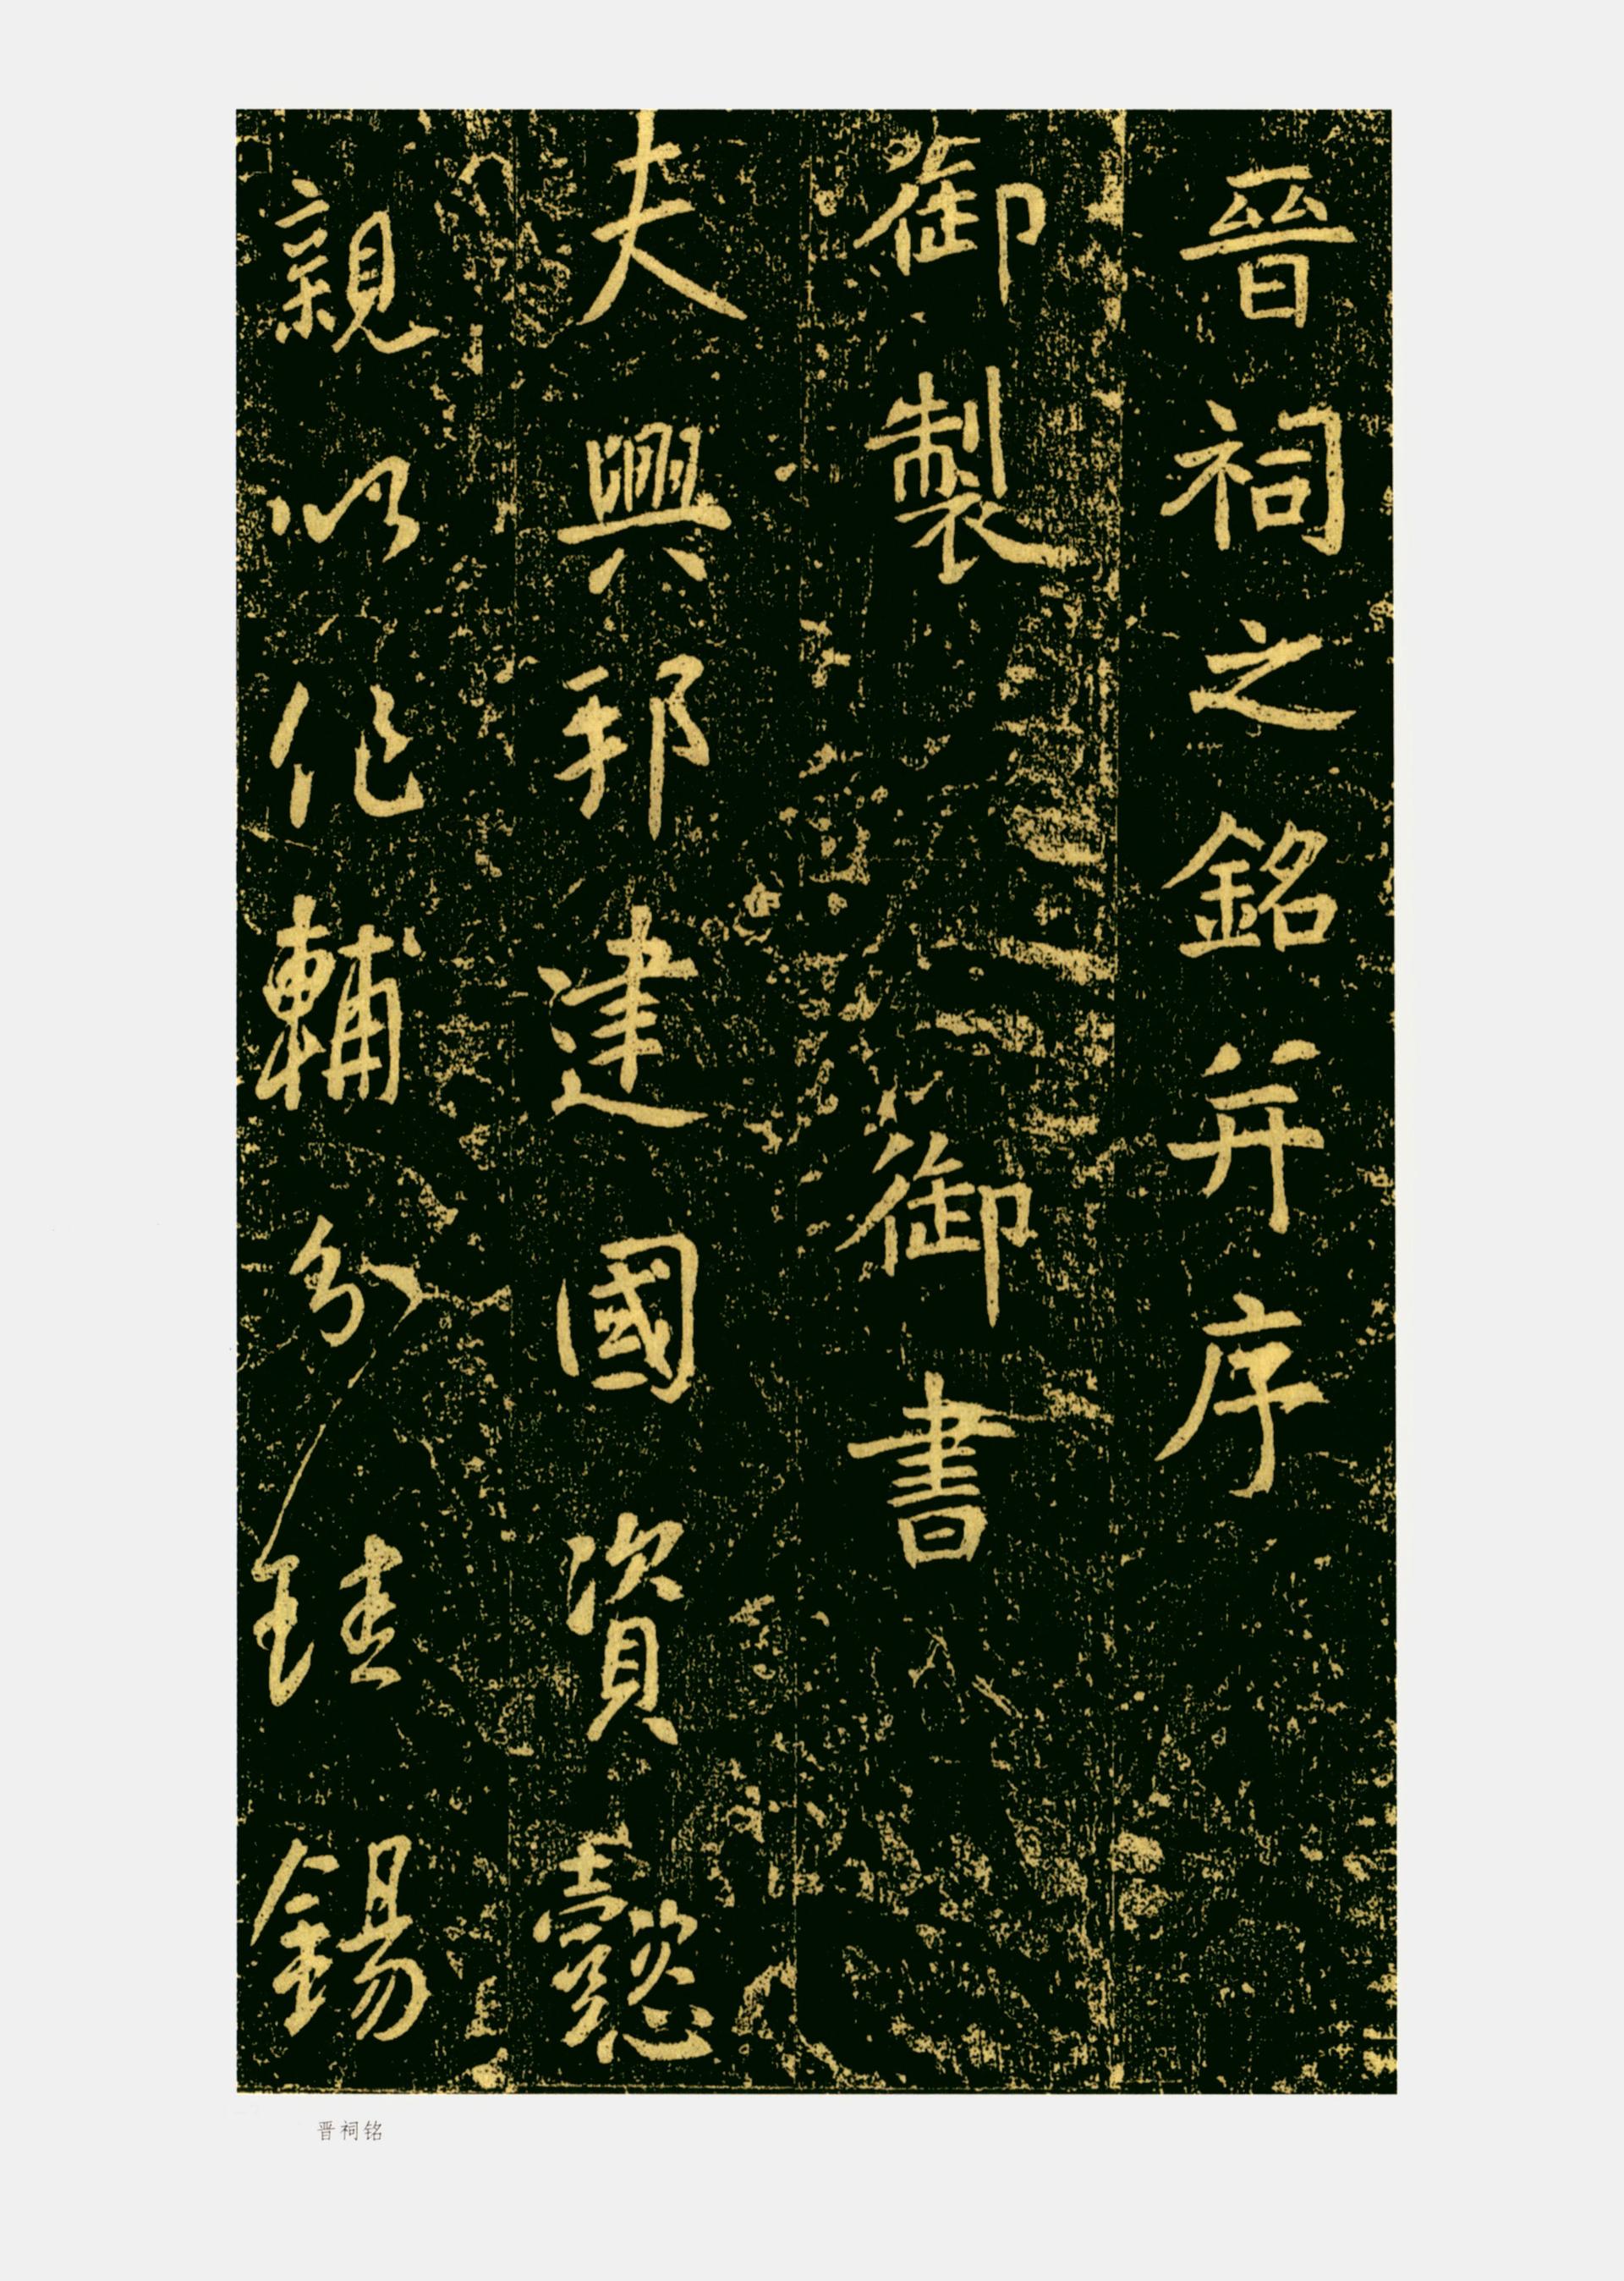 晉祠之銘并序
御製 御書
夫興邦建國資懿
親以作輔分珪錫
晋祠铭